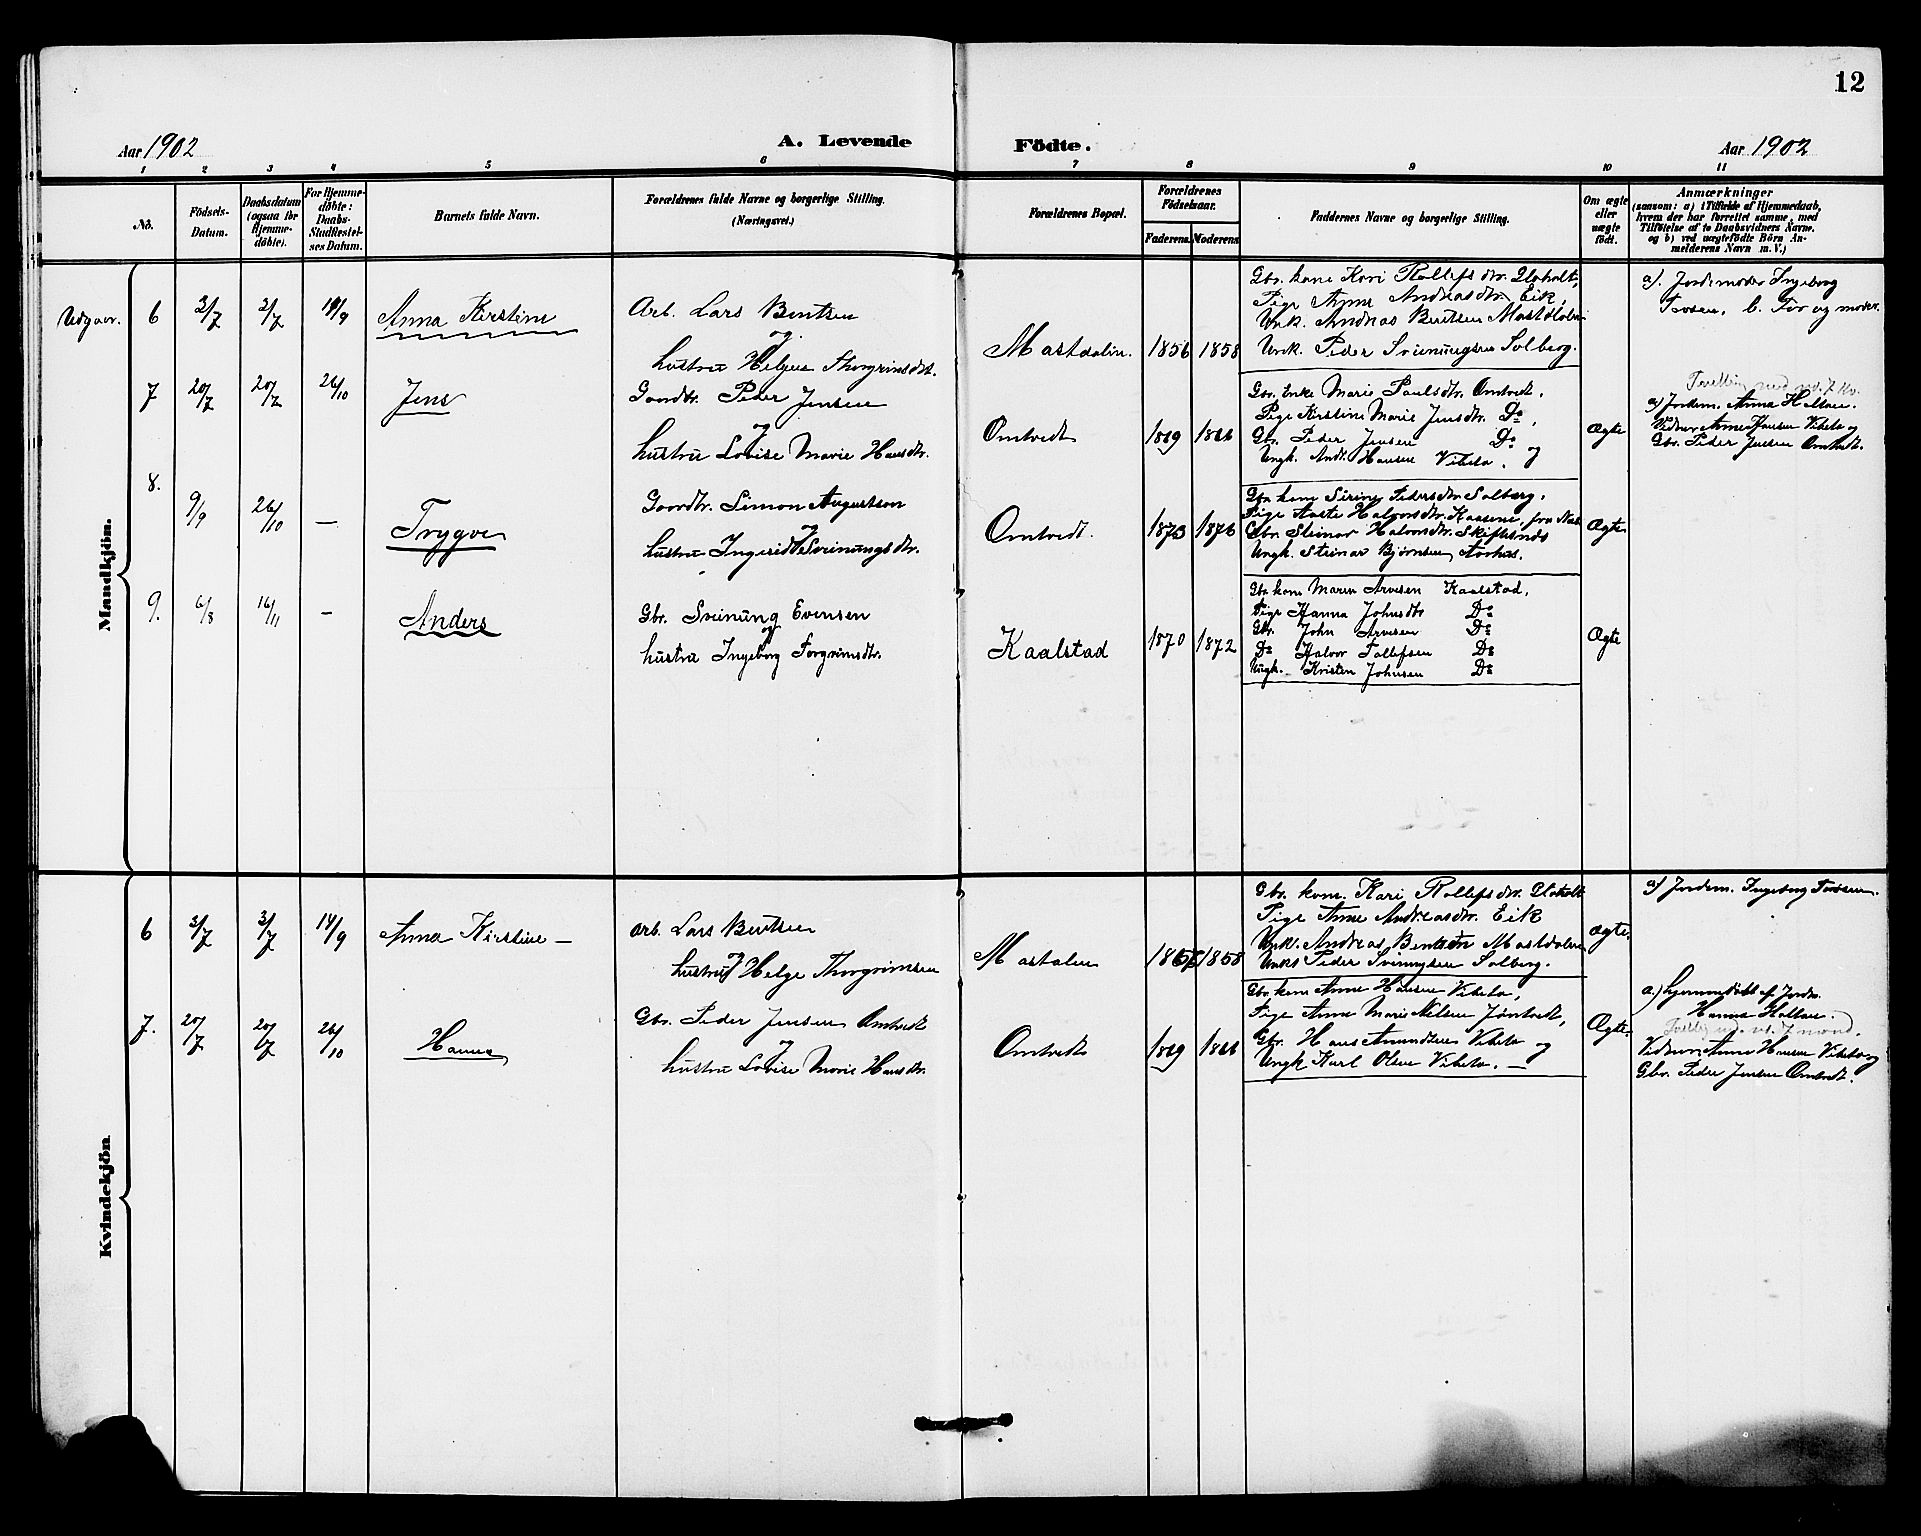 12
Aar 1902
A. Levende
Födte.
Aar 1902
1 2 3 4 5 6 7 8 9 10 11
No.
Födsels-
Datum.
Daabsdatum
(ogsaa for
Hjemme-
döbte).
For Hjemme-
döbte:
Daabs-
Stadfæstel-
ses Datum.
Barnets fulde Navn.
Forældrenes fulde Navne og borgerlige Stilling.
(Næringsvei.)
Forældrenes Bopæl.
Forældrenes
Födselsaar.
Faderens. Moderens
Faddernes Navne og borgerlige Stilling.
Om ægte
eller
uægte
født.
Anmærkninger
(saasom: a) i Tilfælde af Hjemmedaab,
hvem der har forrettet samme, med
Tilføielse af to Daabsvidners Navne.
og b) ved uægtefödte Börn An-
melderens Navn m. V.)
Mandkjön.
Udgaar. 6 3/7 3/7 14/9
Anna Kirstine
Arb. Lars Bentsen
og
hustru Helge Thorgrimsdtr.
Mastdalen. 1856 1858
Gbr. kone Kari Rollefsdtr. Gloholt,
Pige Anne Andreasdtr. Eik,
Unk. Andreas Bentsen Mastdalen
Unk. Peder Sveinungsen Solberg.
a). Jordemoder Ingeborg
b. Far og moder.
7 20/7 20/7 26/10
Jens
Gaardbr. Peder Jensen
og
hustru Lovise Marie Hansdtr.
Omtvedt 1869 1866
Gbr. Enke Marie Paulsdtr. Omtvedt.
Pige Kirstine Marie Jensdtr. Do,
Gbr. Peder Jensen Do
Ungk. Andr. Hansen Vibeto. og
Ægte
Tvilling med no. 7 Kv.
a) Jordem. Anna Holtan.
Vidner Anne Hansen Vibeto og
Gbr. Peder Jensen Omtvedt.
8. 9/9 26/10 —
Trygve
Gaardbr. Simon Augustson
og
hustru Ingerid Sveinungsdtr.
Omtvedt. 1873 1876
Gbr. kone Siring Pedersdtr. Solberg.
Pige Aaste Halvorsdtr. Kaasene, fra
Gbr. Steinar Halvorsdtr. Skiftesnds
Ungk. Steinar Bjørnsen Aarhus.
Ægte
9. 6/8 16/11 —
Anders
Gbr. Sveinung Evensen
og
hustru Ingeborg Torgrimsdtr.
Kaalstad 1870 1872
Gbr kone Maren Arvesen Kaalstad,
Pige Hanna Johnsdtr Do
Gbr. John Arvesen Do
Do Halvor Tollefsen Do
Ungk. Kristen Johnsen Do
Ægte
Kvindekjön
6 3/7 3/7 14/9
Anna Kirstine —
Arb. Lars Bentsen
og
hustru Helge Thorgrimsen
Mastalen 1856 1858
Gbr. kone. Kari Rollefsdtr. Gloholt
Pige Anne Andreasdtr. Eik
Unk. Andreas Bentsen Mastdalen
Unk Peder Sveinungsen Solberg.
Ægte.
a) Jordem. Ingeborg
7. 20/7 20/7 26/10
Hanna
Gbr. Peder Jensen Omtvedt
og
hustru Lovise Marie Hansdtr.
Omtvedt 1869 1866
Gbr kone Anne Hansen Vibeto,
Pige Anne Marie Nilsen Jøntvedt,
Gbr. Hans Amundsen Vibeto og
Ungk Karl Olsen Vibeto. —
Ægte
a.) Hjemmedøbt af Jordm.
Hanna Holtan.
Tvilling med no. 7 mand.
Vidner: Anne Hansen Vibeto og
Gbr. Peder Jensen Omtvedt.